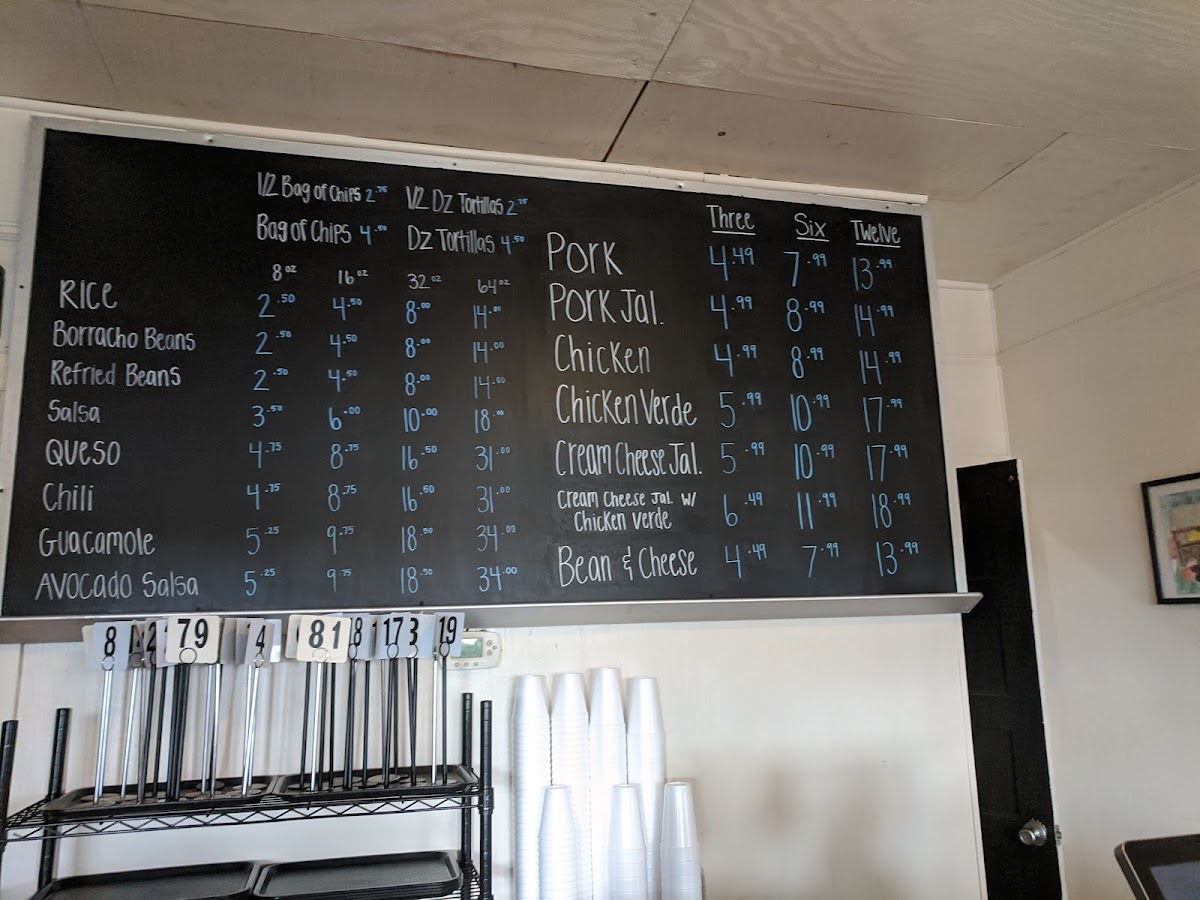 1/2 Bag of Chips 2.75 1/2 Dz Tortillas 2.25
Bag of Chips 4.50 Dz Tortillas 4.50
8oz 16oz 32oz 64oz
Rice 2.50 4.50 8.00 14.00
Borracho Beans 2.50 4.50 8.00 14.00
Refried Beans 2.50 4.50 8.00 14.00
Salsa 3.50 6.00 10.00 18.00
Queso 4.75 8.75 16.50 31.00
Chili 4.75 8.75 16.50 31.00
Guacamole 5.25 9.75 18.50 34.00
Avocado Salsa 5.25 9.75 18.50 34.00
Three Six Twelve
Pork 4.49 7.99 13.99
Pork Jal. 4.99 8.99 14.99
Chicken 4.99 8.99 14.99
Chicken Verde 5.99 10.99 17.99
Cream Cheese Jal. 5.99 10.99 17.99
Cream Cheese Jal. w/
Chicken Verde 6.49 11.99 18.99
Bean & Cheese 4.49 7.99 13.99
8 79 4 81 8 17 3 19